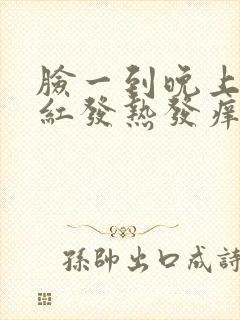 臉一到晚上
紅發熱發痒
孫帥出口成詩